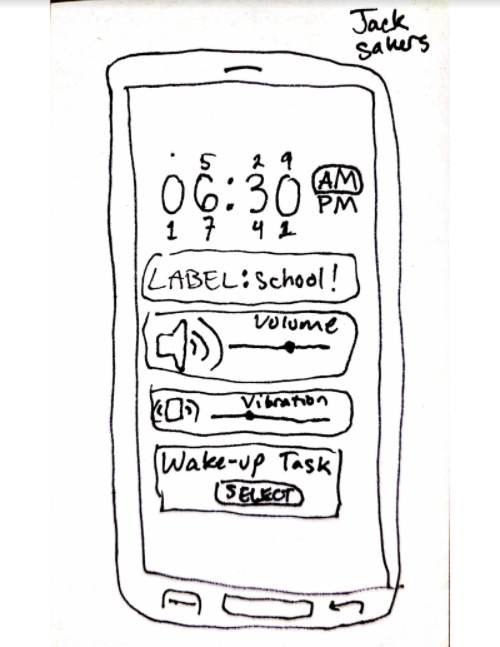 Jack
Sakers
5 2 9
06:30 AM
PM
1 7 4 1
LABEL: School!
Volume
Vibration
Wake-up Task
SELECT